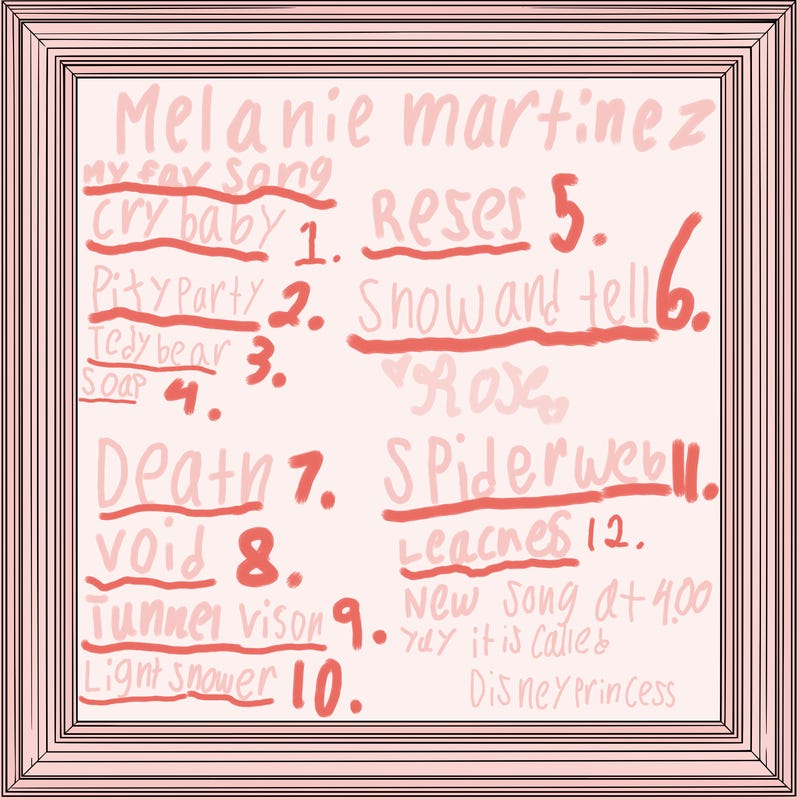 Melanie martinez
my fav song
cry baby 1.
Pity Party 2.
Tedy bear 3.
Soap 4.
Reses 5.
Snow and tell 6.
Rose
Death 7.
void 8.
Tunnel vison 9.
Light snower 10.
Spider web 11.
Leacnes 12.
New song at 4.00
yay it is called
Disney princess